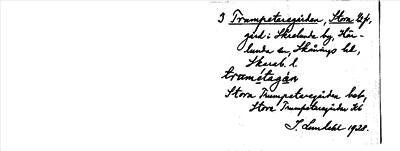 3 Trumpetaregården, Stora Upp,
gård i Skrelunda by, Hör-
lunda sn, Skånings hd,
Skarab. l.
tramétagán
Stora Trumpetaregården beb,
Stora Trumpetaregården Kb
J. Lundahl 1928.